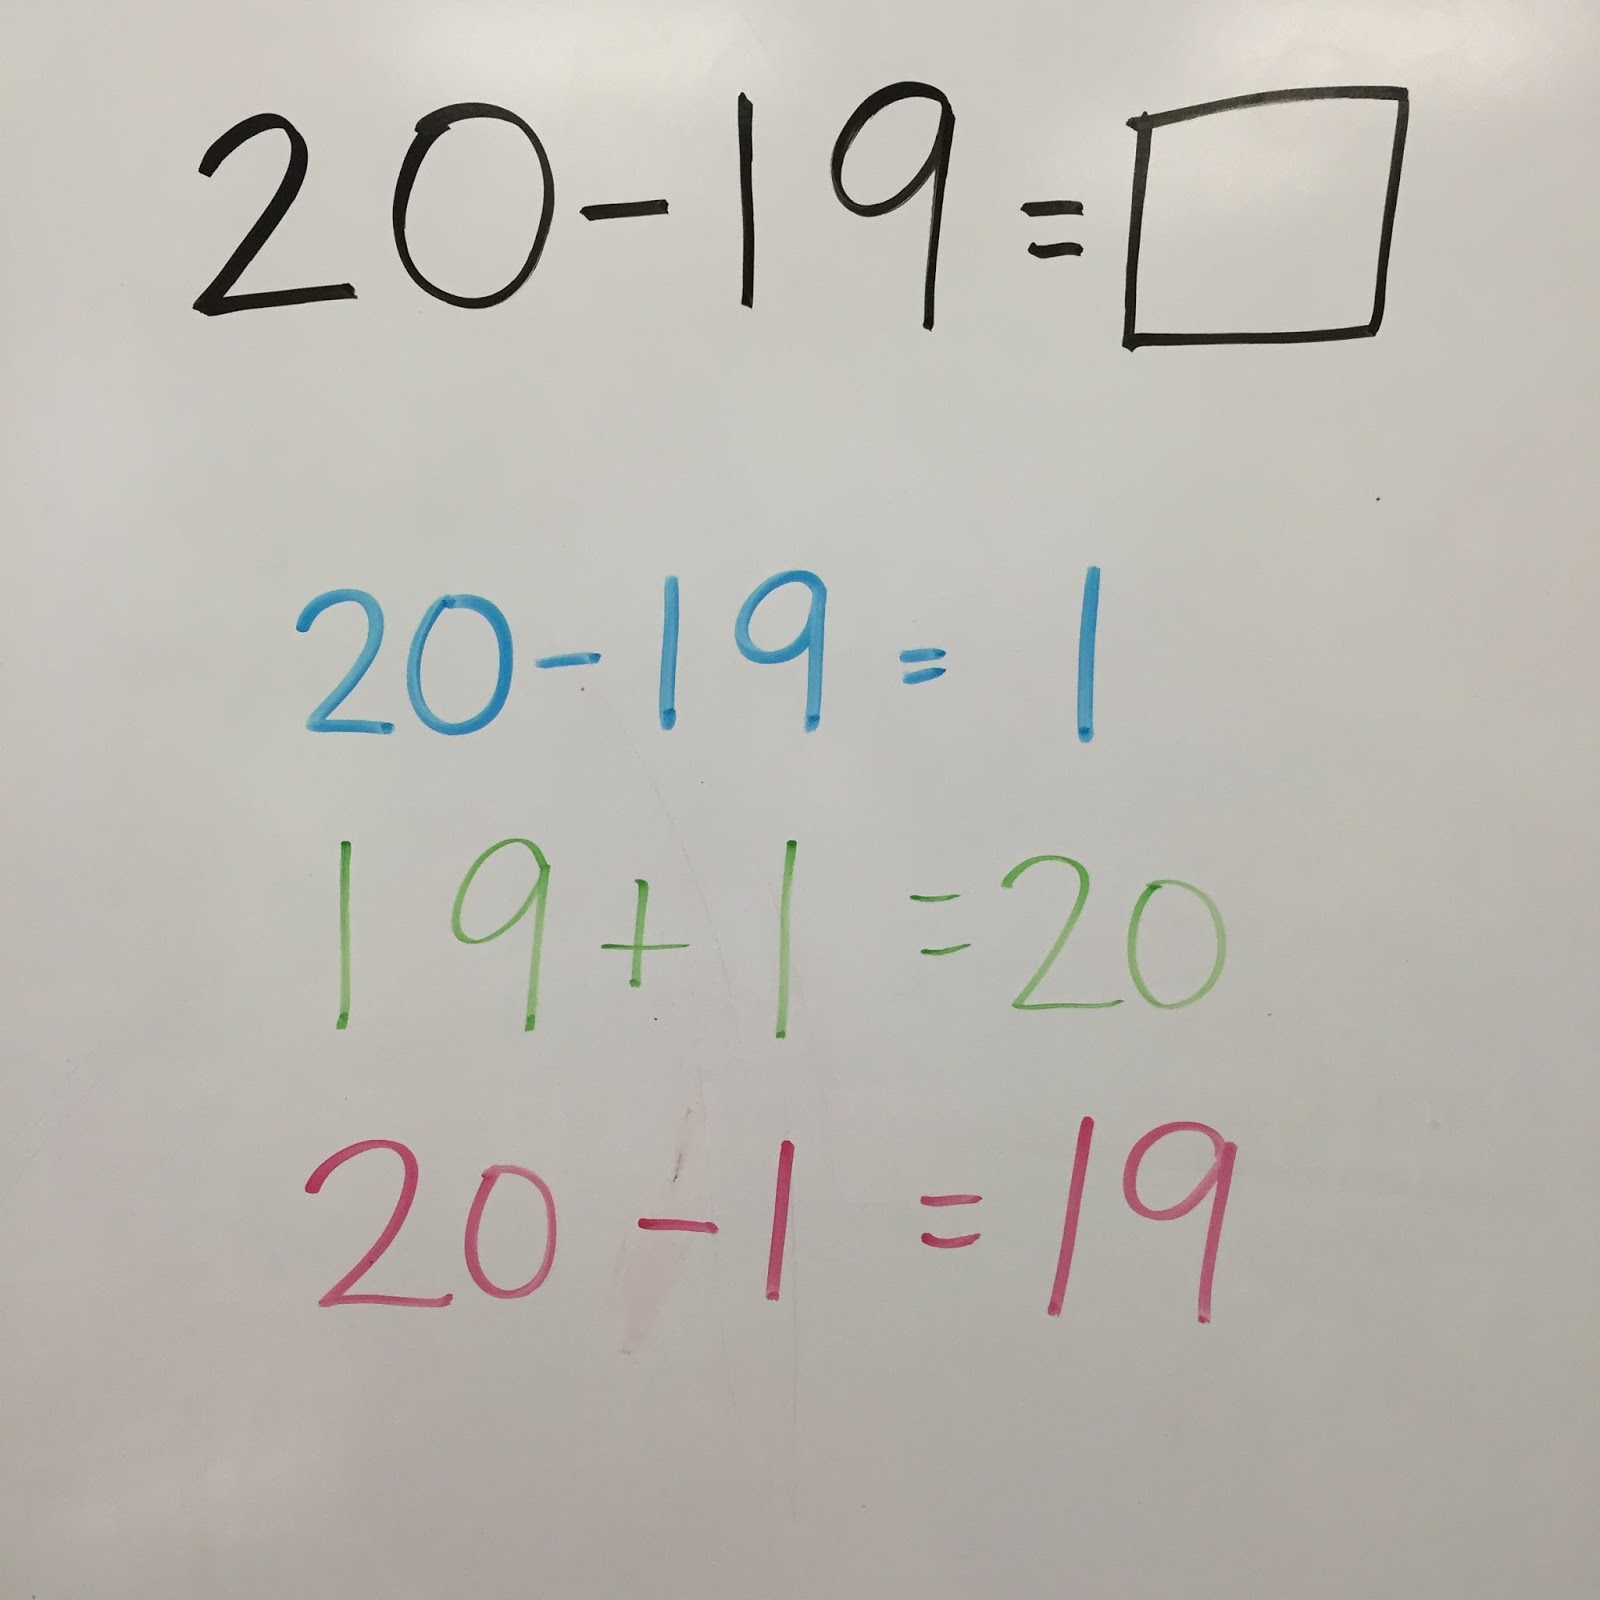 20-19=□
20-19=1
19+1=20
20-1=19